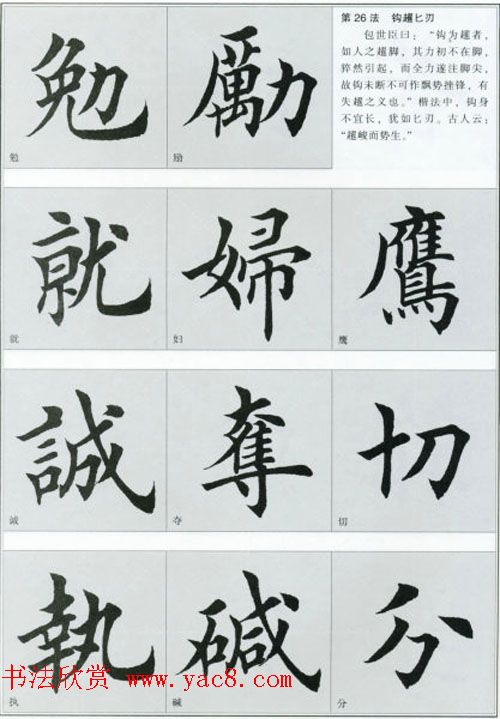 第26法 钩趯匕刃
包世臣曰：“钩为趯者，
如人之趯脚，其力初不在脚，
猝然引起，而全力遂注脚尖，
故钩未断不可作飘势挫锋，有
失趯之义也。”楷法中，钩身
不宜长，犹如匕刃。古人云：
“趯峻而势生。”
勉 勵
勉 励
就 婦 鷹
就 妇 鹰
誠 奪 切
诚 夺 切
執 碱 分
执 碱 分
书法欣赏 www.yac8.com